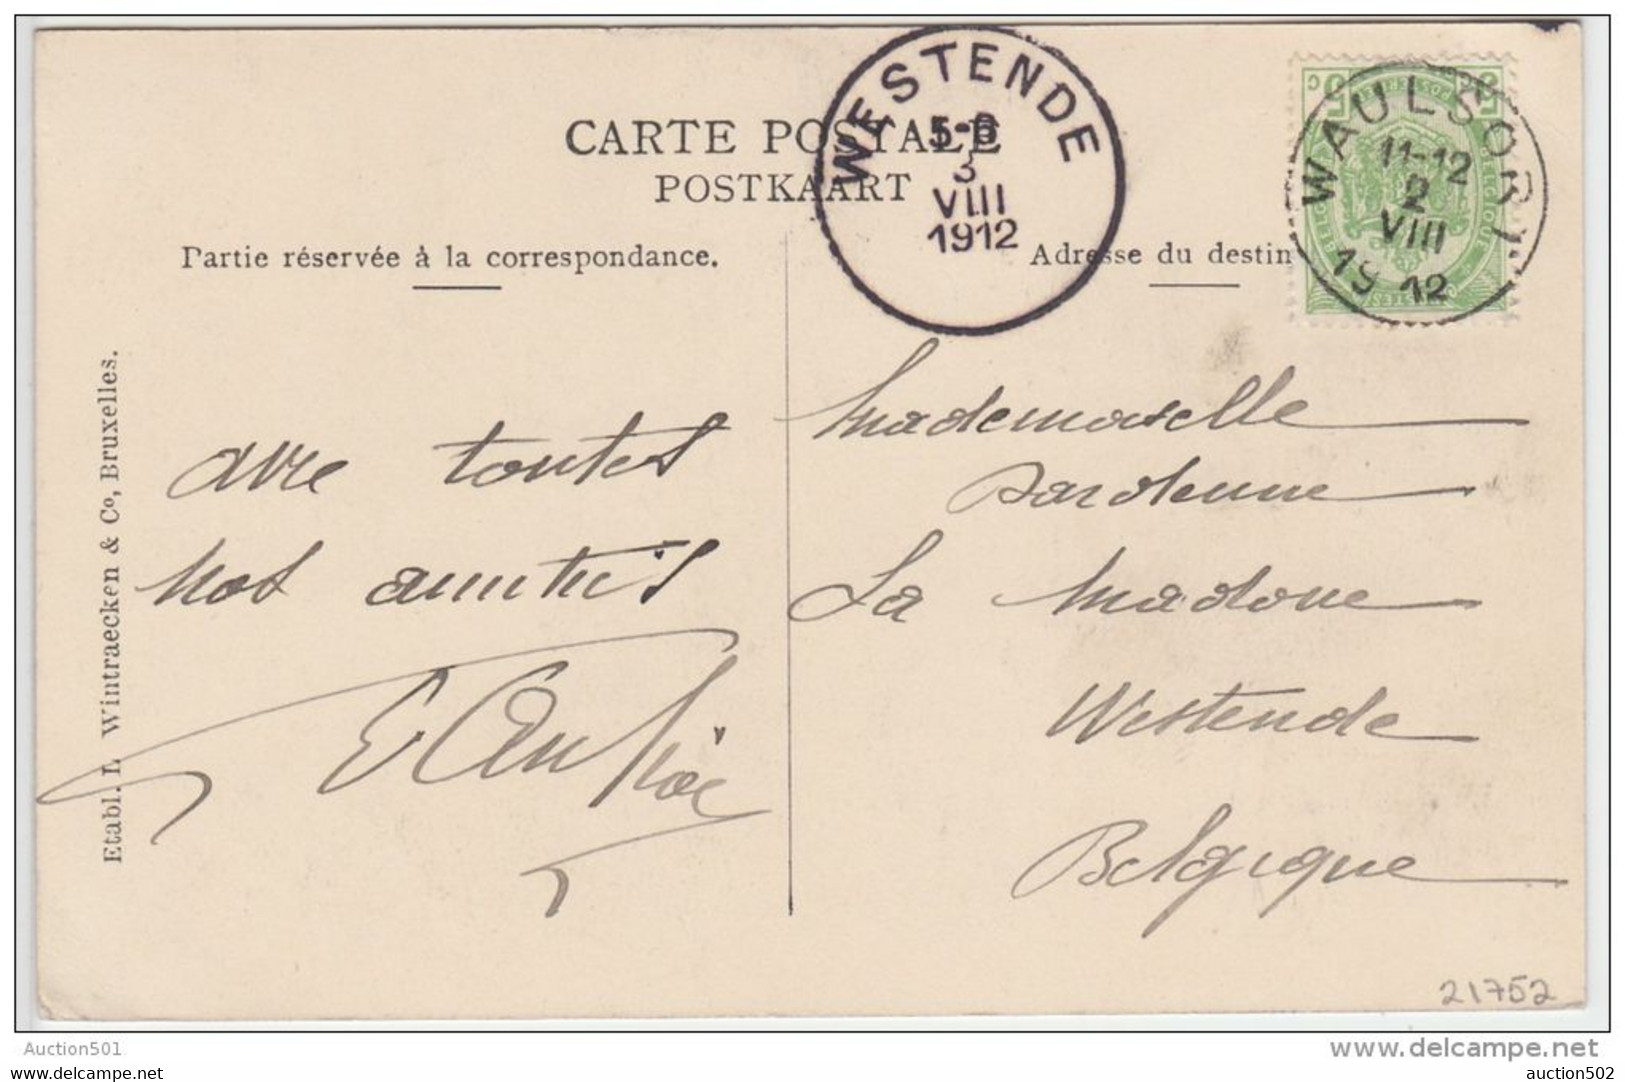 CARTE POSTALE
POSTKAART
WESTENDE
5-6
3
VIII
1912
WAULSORT
11-12
2
VIII
1912
Partie réservée à la correspondance.
Adresse du destin
Etabl. L Wintraecken & Co, Bruxelles.
avec toutes
nos amitiés
Mademoiselle
Dardenne
La Madone
Westende
Belgique
21752
Auction501
www.delcampe.net
http://www.delcampe.net
auction502